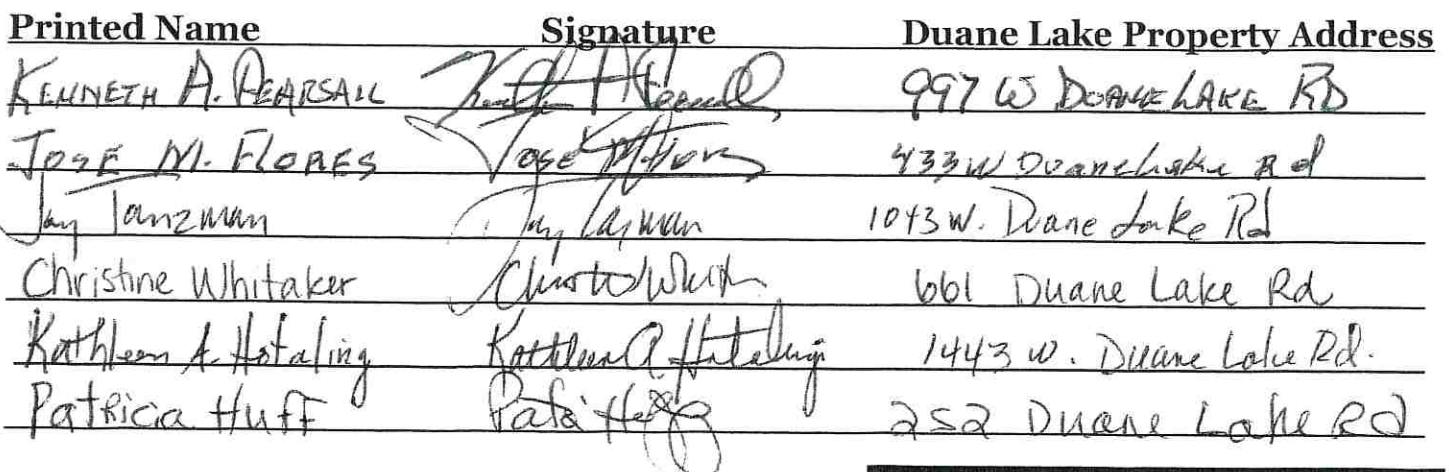 Printed Name Signature Duane Lake Property Address
KENNETH A. PEARSALL 997 W DUANE LAKE RD
JOSE M. FLORES Jose M Flores 433 W Duane Lake Rd
Jay Tanzman Jay Tanzman 1043 W. Duane Lake Rd
Christine Whitaker 661 Duane Lake Rd
Kathleen A. Hotaling Kathleen A. Hotaling 1443 W. Duane Lake Rd.
Patricia Huff 252 Duane Lake Rd